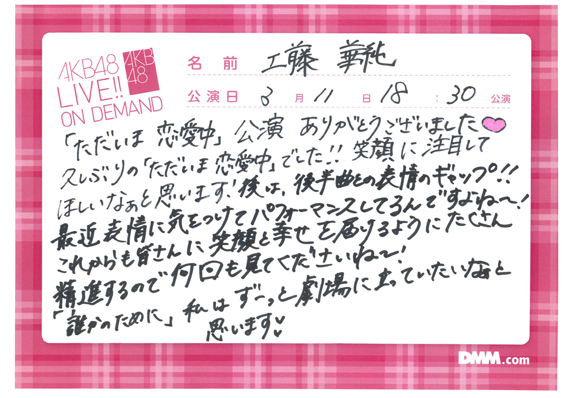 AKB48
LIVE!!
ON DEMAND
AKB
48
名前 工藤 華純
公演日 3月11日 18:30公演
「ただいま 恋愛中」公演 ありがとうございました
久しぶりの「ただいま 恋愛中」でした!! 笑顔に注目して
ほしいなぁと思います!後は、後半曲との表情のギャップ!!
最近表情に気をつけてパフォーマンスしてるんですよね〜!
これからも皆さんに笑顔と幸せを届けるようにたくさん
精進するので何回も見てくださいね〜!
「誰かのために」私はずーっと劇場に立っていたいなぁと
思います
DMM.com